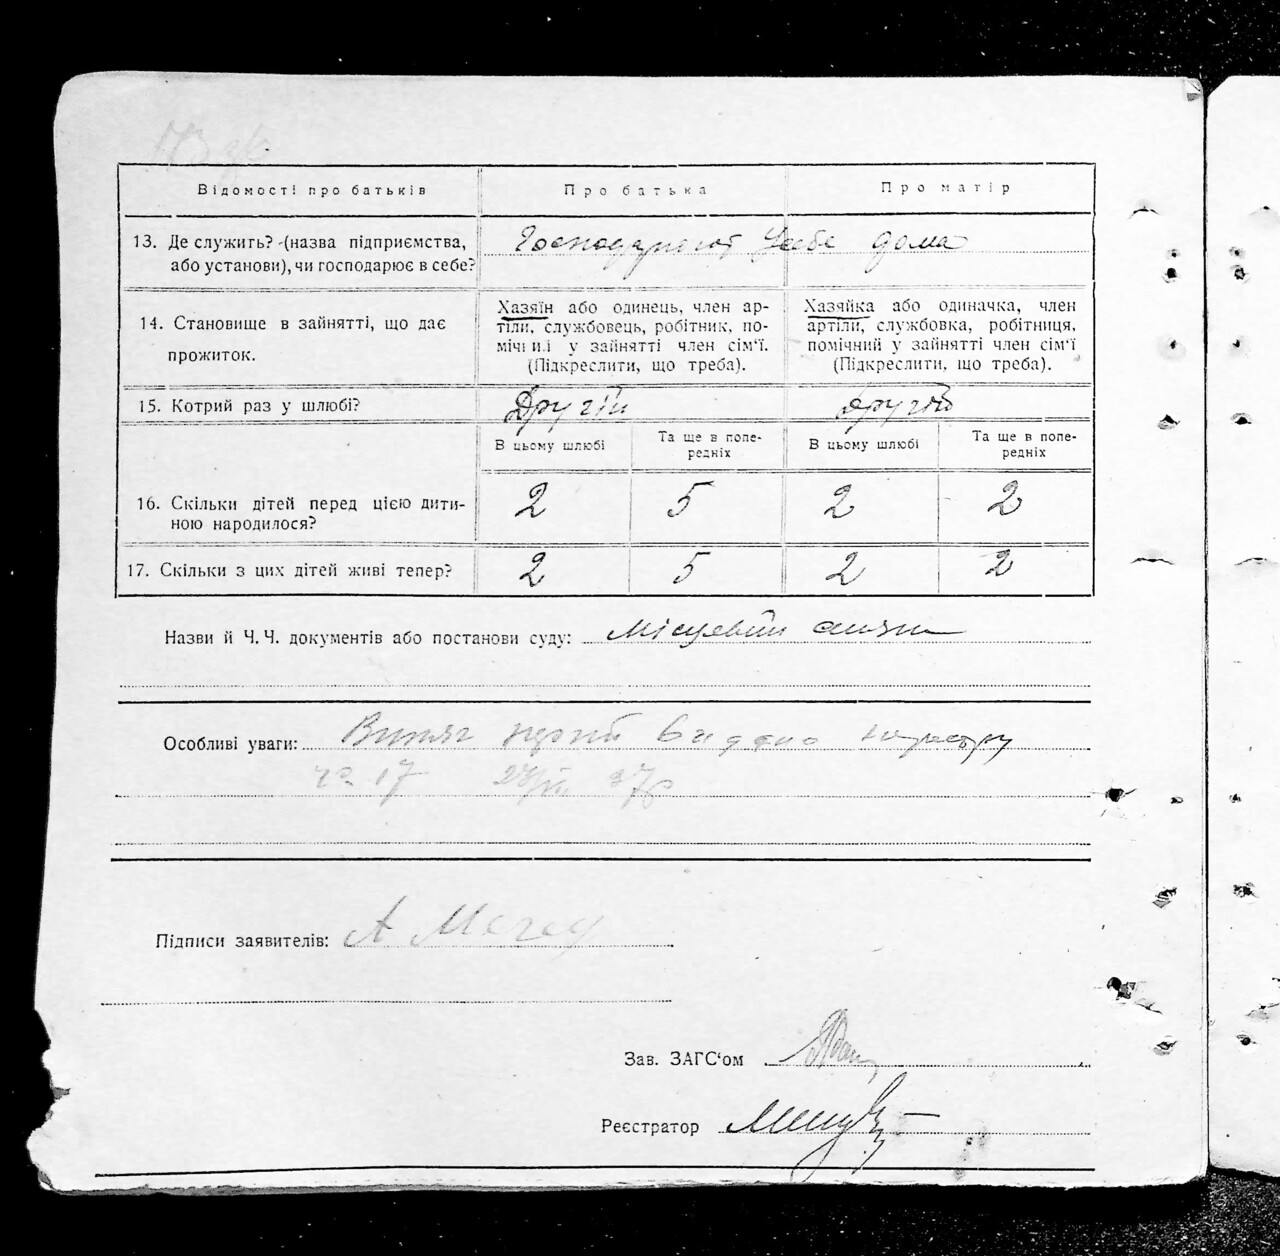 Відомості про батьків Про батька Про матір
13. Де служить? (назва підприємства, або установи), чи господарює в себе?
Господарюют Усебе дома
14. Становище в зайнятті, що дає прожиток.
Хазяїн або одинець, член ар-
тіли, службовець, робітник, по-
мічний у зайнятті член сім'ї.
(Підкреслити, що треба).
Хазяйка або одиначка, член
артіли, службовка, робітниця,
помічний у зайнятті член сім'ї
(Підкреслити, що треба).
15. Котрий раз у шлюбі? Другій Другій
В цьому шлюбі Та ще в попе-редніх В цьому шлюбі Та ще в попе-редніх
16. Скільки дітей перед цією дити-
ною народилося? 2 5 2 2
17. Скільки з цих дітей живі тепер? 2 5 2 2
Назви й Ч. Ч. документів або постанови суду:
Особливі уваги: Витяг
17
Підписи заявителів: А
Зав. ЗАГС'ом
Реєстратор